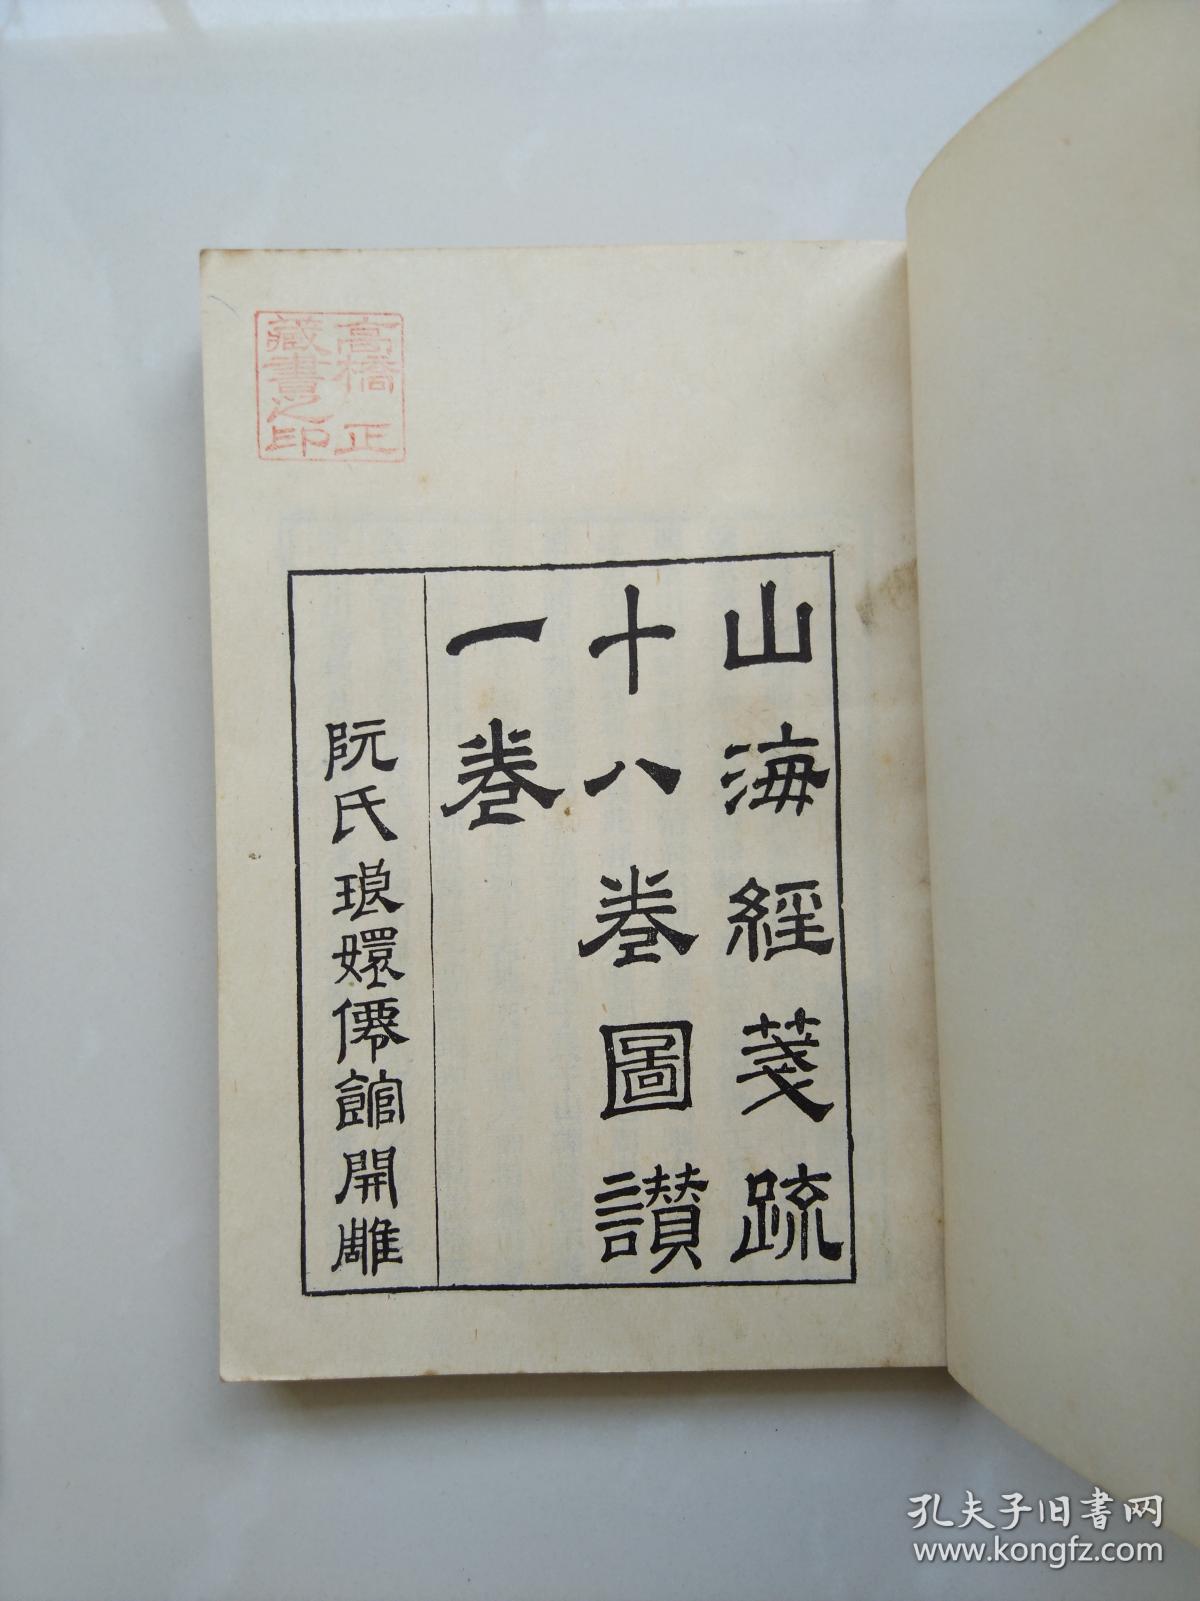 高橋正
藏書之印
山海經箋疏
十八卷圖讃
一卷
阮氏琅嬛僊館開雕
孔夫子旧书网
www.kongfz.com